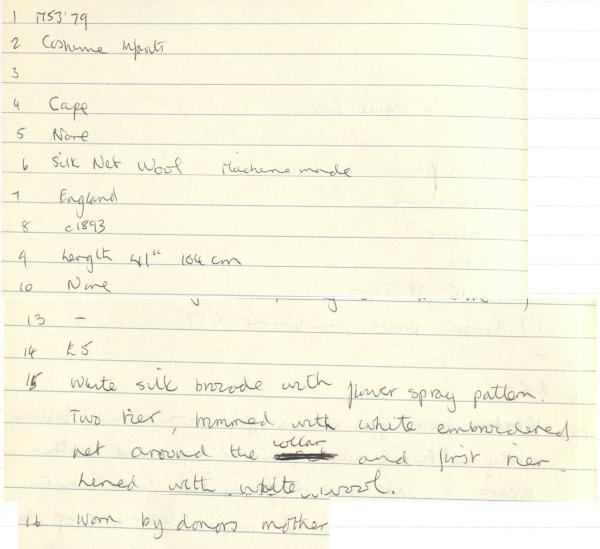 1 M53'79
2 Costume Infants
3
4 Cape
5 None
6 Silk Net Wool Machine made
7 England
8 c1893
9 Length 41" 104 cm
10 None
13 -
14 £5
15 White silk brocade with flower spray pattern.
Two tier, trimmed with white embroidered
net around the collar and first tier.
Lined with white wool.
16 Worn by donors mother